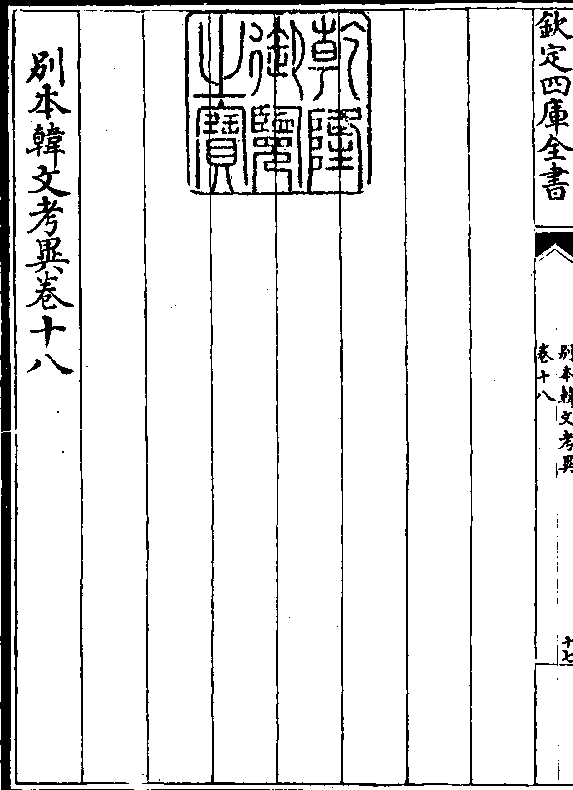 欽定四庫全書
別本韓文考異
卷十八
十七
乾隆
御覽
之寶
別本韓文考異卷十八